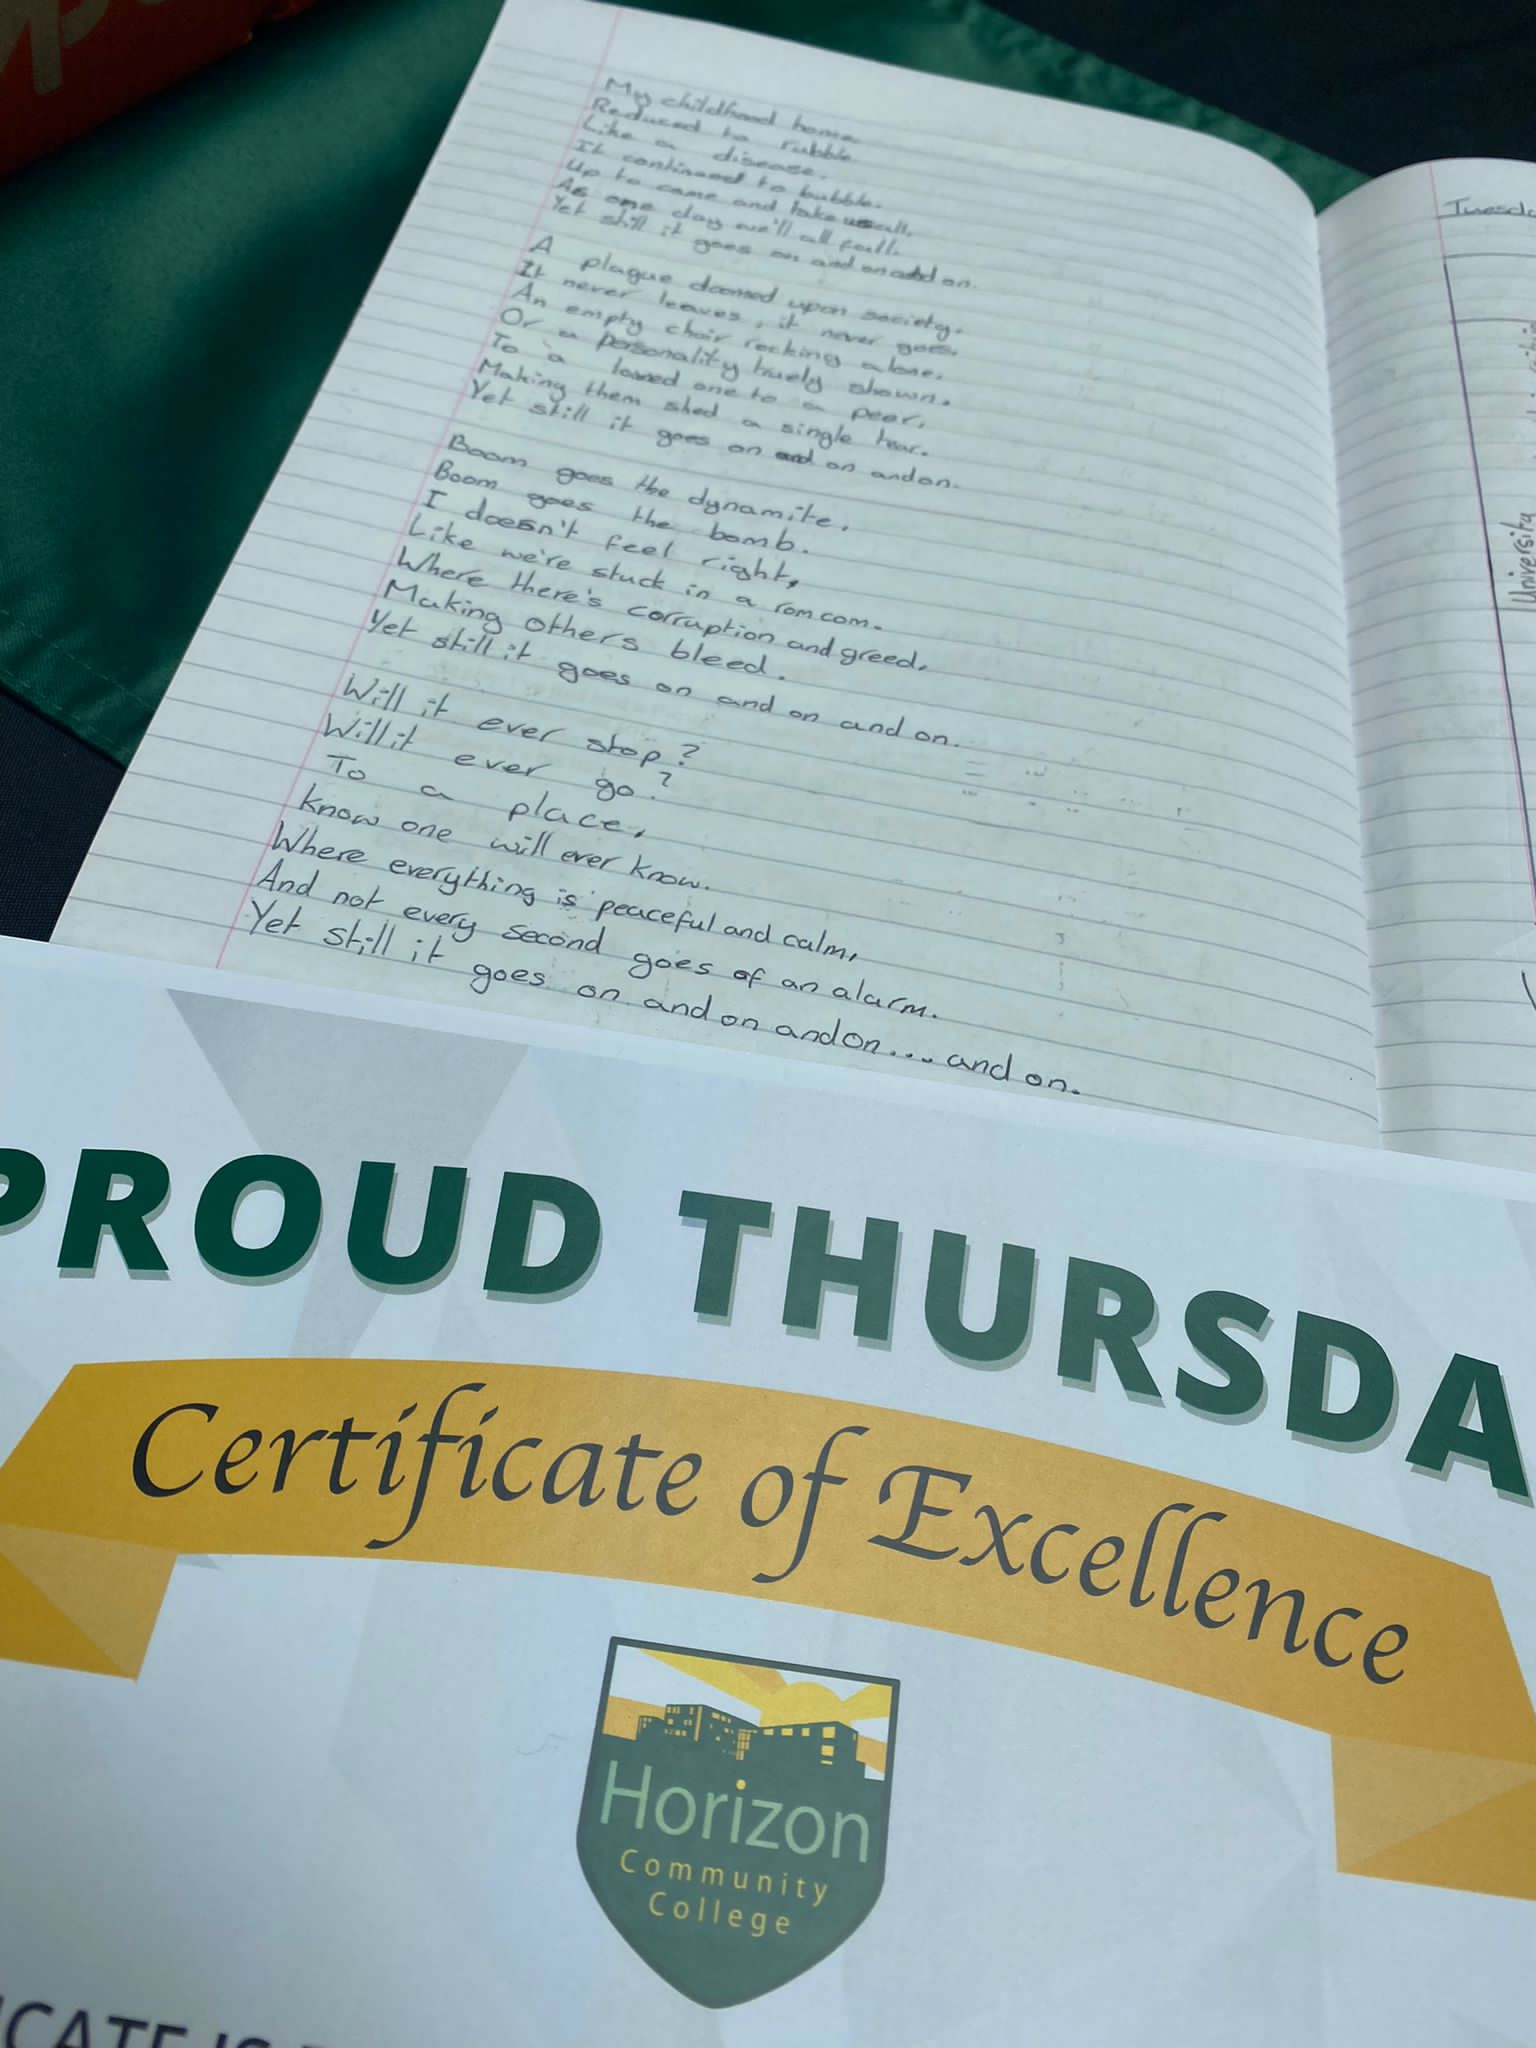 My childhood home
Reduced to rubble
Like a disease.
It continued to bubble.
Up to come and take us all.
As one day we'll all fall.
Yet still it goes on and on and on.
A plague doomed upon society.
It never leaves, it never goes.
An empty chair rocking alone.
Or a personality truely shown.
To a loved one to a peer.
Making them shed a single tear.
Yet still it goes on and on and on.
Boom goes the dynamite.
Boom goes the bomb.
I doesn't feel right,
Like we're stuck in a rom com.
Where there's corruption and greed.
Making others bleed.
Yet still it goes on and on and on.
Will it ever stop?
Will it ever go?
To a place,
Know one will ever know.
Where everything is peaceful and calm,
And not every second goes of an alarm.
Yet still it goes on and on and on.... and on.
Tuesda
University
PROUD THURSDA
Certificate of Excellence
Horizon
Community
College
ICATE IS